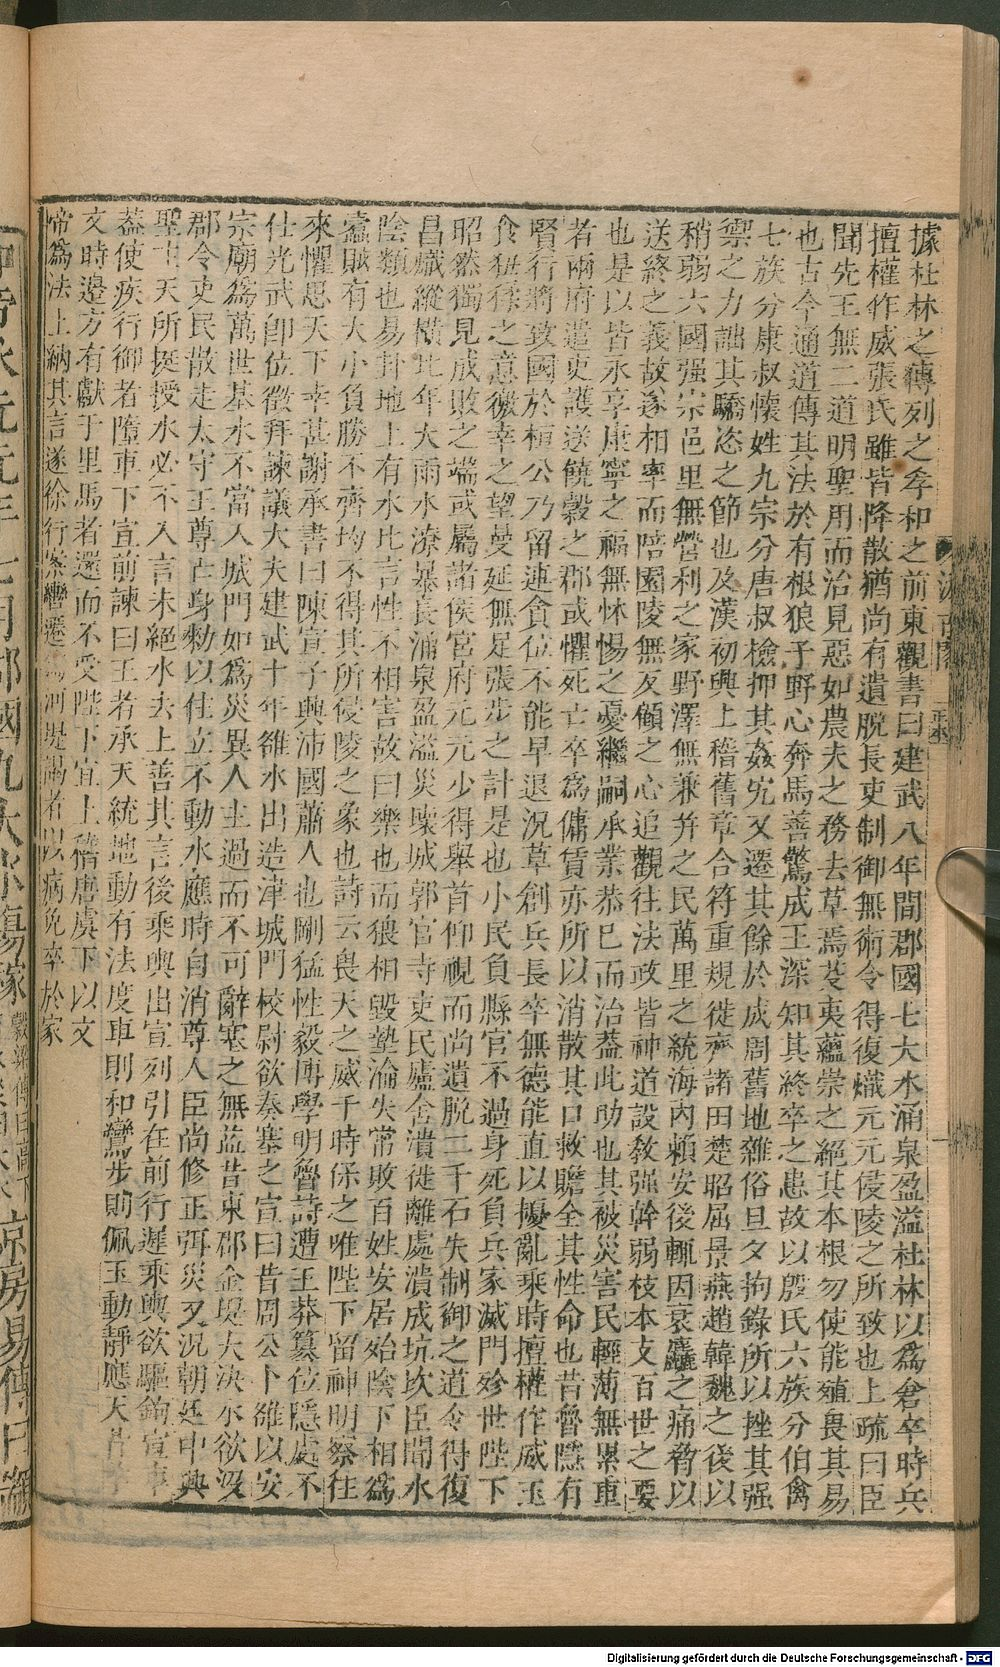 據杜林之傳列之孝和之前東觀書曰建武八年間郡國七大水涌泉盈溢杜林以爲倉卒時兵
擅權作威張氏雖皆降散猶尚有遺脫長吏制御無術令得復熾元元侵陵之所致也上疏曰臣
聞先王無二道明聖用而治見惡如農夫之務去草焉芟夷蘊崇之絕其本根勿使能殖畏其易
也古今通道傳其法於有根狼子野心奔馬善驚成王深知其終卒之患故以殷氏六族分伯禽
七族分康叔懷姓九宗分唐叔檢押其姦宄又遷其餘於成周舊地雜俗旦夕拘錄所以挫其强
禦之力詘其驕恣之節也及漢初興上稽舊章合符重規徙齊諸田楚昭屈景燕趙韓魏之後以
稍弱六國强宗邑里無營利之家野澤無兼并之民萬里之統海內賴安後輒因衰麤之痛脅以
送終之義故遂相率而陪園陵無反顧之心追觀往法政皆神道設教强幹弱枝本支百世之要
也是以皆永享康寧之福無怵惕之憂繼嗣承業恭已而治葢此助也其被災害民輕薄無累重
者兩府遣吏護送饒穀之郡或懼死亡卒爲傭賃亦所以消散其口救贍全其性命也昔魯隱有
賢行將致國於桓公乃留連貪位不能早退況草創兵長卒無德能直以擾亂乘時擅權作威玉
食狃猱之意徼幸之望曼延無足張步之計是也小民負縣官不過身死負兵家滅門殄世陛下
昭然獨見成敗之端或屬諸侯宮府元元少得舉首仰視而尚遺脫二千石失制御之道令得復
昌熾縱橫比年大雨水潦暴長涌泉盈溢災壞城郭官寺吏民廬舍潰徙離處潰成坑坎臣聞水
陰類也易卦地上有水比言性不相害故曰樂也而猥相毀墊淪失常敗百姓安居殆陰下相爲
蠹賊有大小負勝不齊均不得其所侵陵之象也詩云畏天之威于時保之唯陛下留神明察往
來懼思天下幸甚謝承書曰陳宣子興沛國蕭人也剛猛性毅博學明魯詩遭王莽篡位隱處不
仕光武卽位徵拜諫議大夫建武十年雒水出造津城門校尉欲奏塞之宣曰昔周公卜雒以安
宗廟爲萬世基水不當入城門如爲災異人主過而不可辭塞之無益昔東郡金堤大決水欲沒
郡令吏民散走太守王尊亡身勑以住立不動水應時自消尊人臣尚修正弭災又況朝廷中興
聖主天所挺授水必不入言未絕水去上善其言後乘輿出宣列引在前行遲乘輿欲驅鉤宣車
葢使疾行御者墮車下宣前諫曰王者承天統地動有法度車則和鸞步則佩玉動靜應天昔孝
文時邊方有獻千里馬者還而不受陛下宜上稽唐虞下以文
帝爲法上納其言遂徐行按轡遷爲河堤謁者以病免卒於家
Digitalisierung gefördert durch die Deutsche Forschungsgemeinschaft - DFG